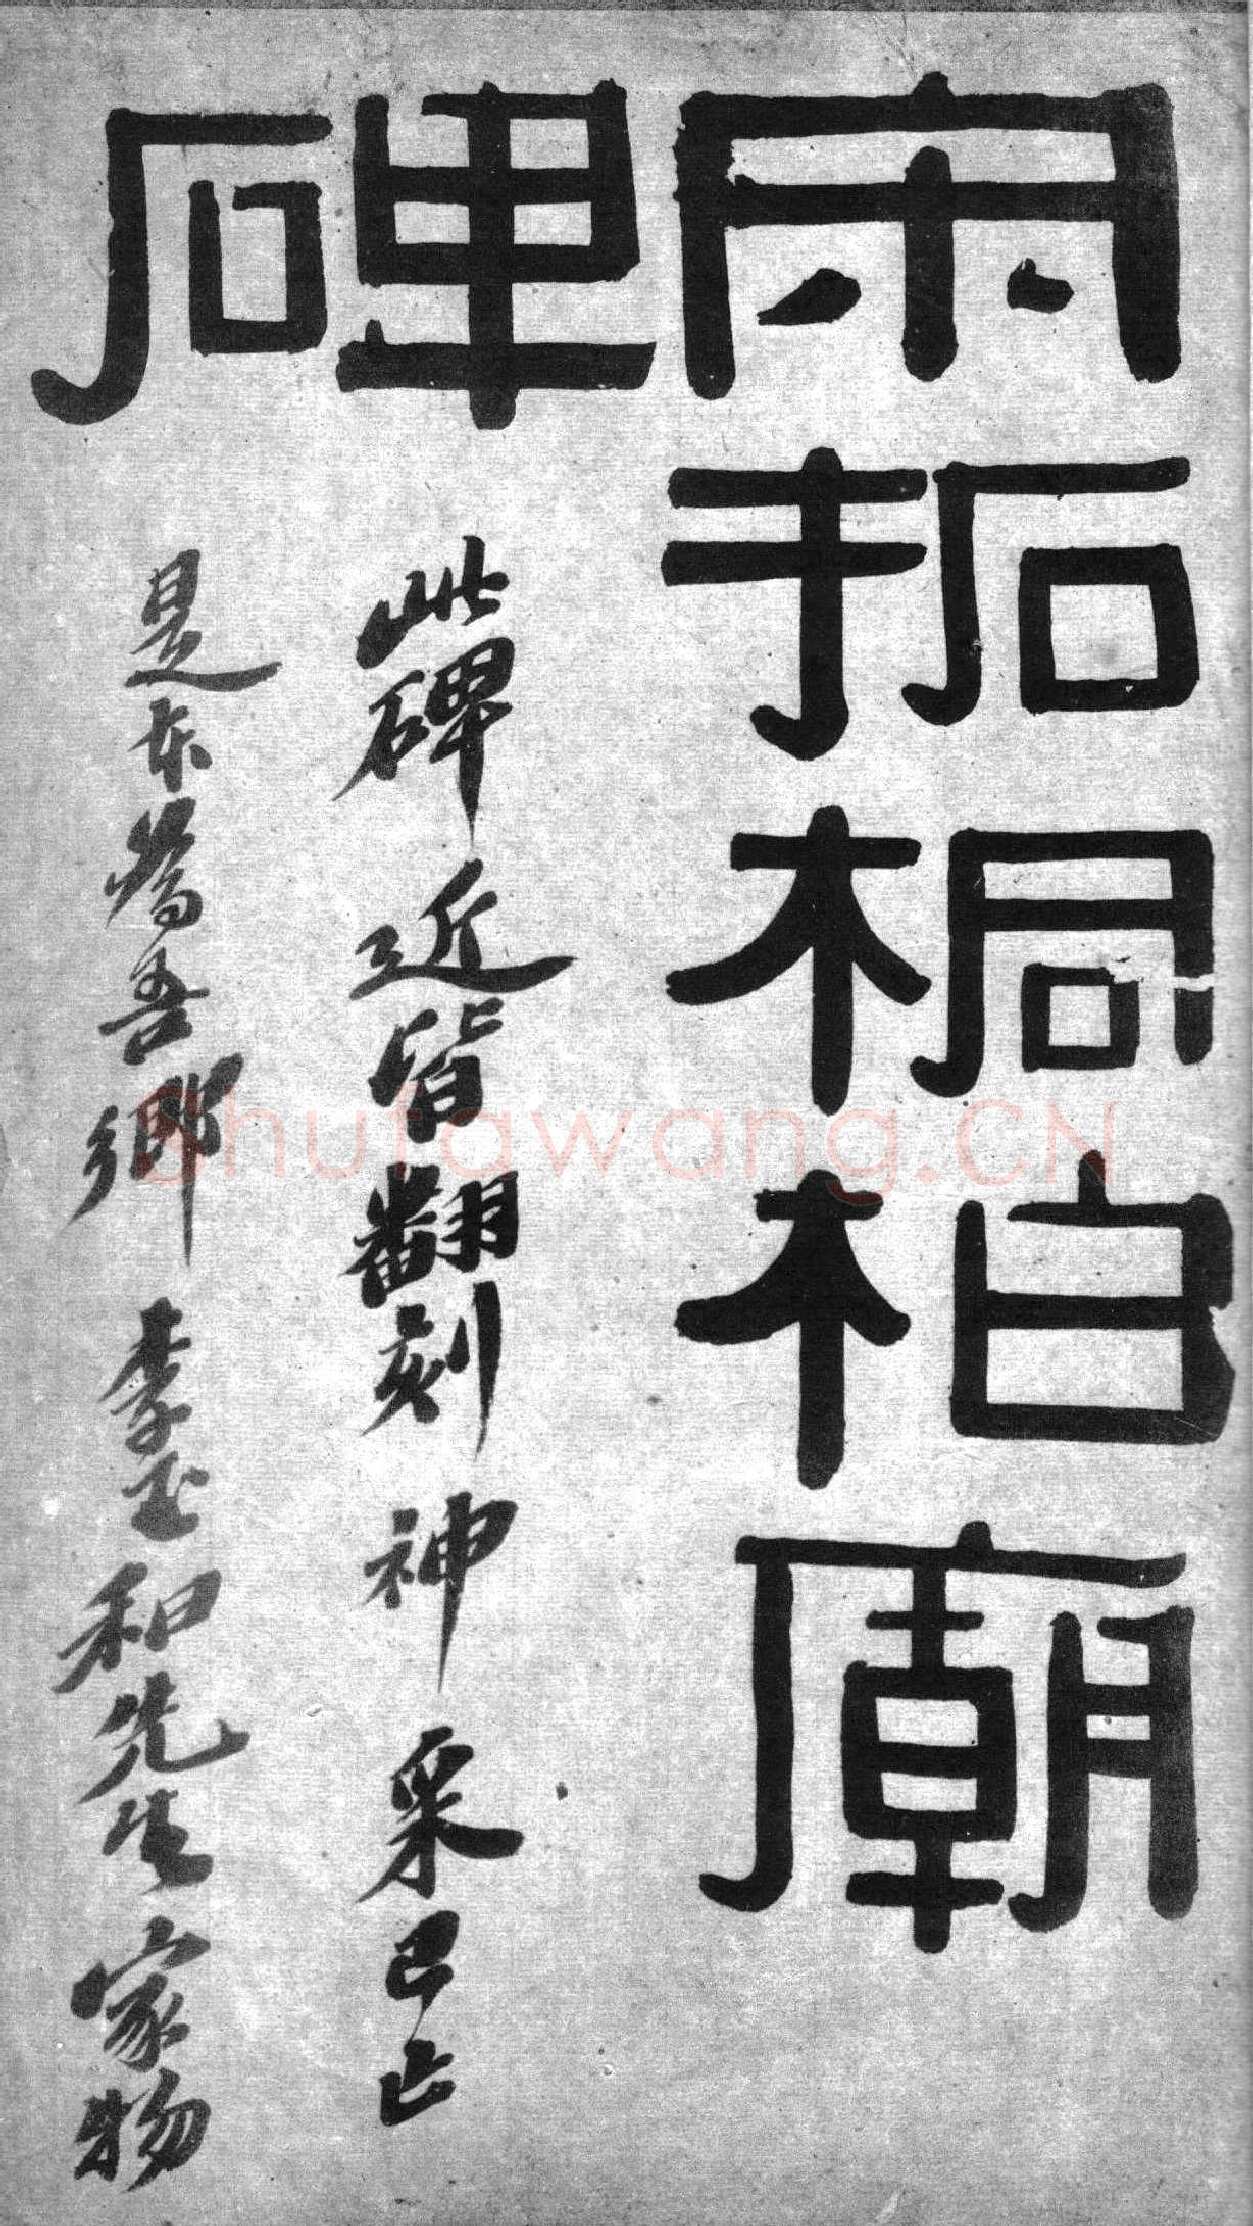 宋拓桐柏廟
碑
此碑近皆翻刻神采已亡
是本為吾鄉李玉和先生家物
Shufawang.CN